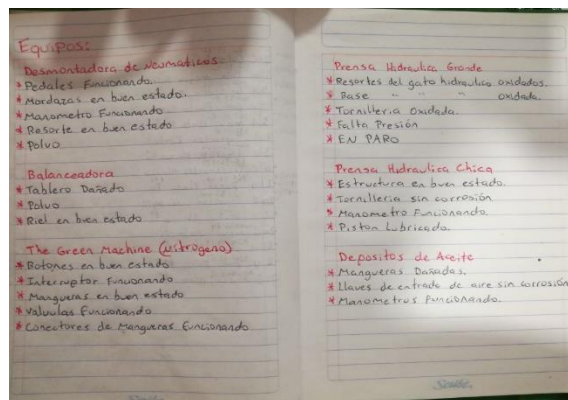 Equipos:
Desmontadora de Neumaticos.
* Pedales Funcionando.
* Mordazas en buen estado.
* Manometro Funcionando
* Resorte en buen estado
* Polvo
Balanceadora
* Tablero Dañado
* Polvo
* Riel en buen estado
The Green Machine (Nitrogeno)
* Botones en buen estado
* Interruptor Funcionando
* Mangueras en buen estado
* Valvulas Funcionando
* Conectores de Mangueras Funcionando
Prensa Hidraulica Grande
* Resortes del gato hidraulico oxidados.
* Base " " " oxidada.
* Tornilleria Oxidada.
* Falta Presión
* EN PARO
Prensa Hidraulica Chica
* Estructura en buen estado.
* Tornilleria sin corrosión
* Manometro Funcionando.
* Piston Lubricado.
Depositos de Aceite
* Mangueras Dañadas.
* Llaves de entrada de aire sin corrosión
* Manometros Funcionando.
Scribe